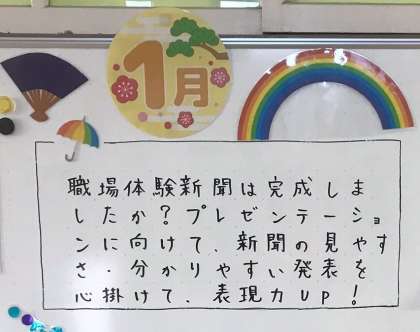 1月
職場体験新聞は完成しま
したか？プレゼンテーショ
ンに向けて、新聞の見やす
さ・分かりやすい発表を
心掛けて、表現力UP！